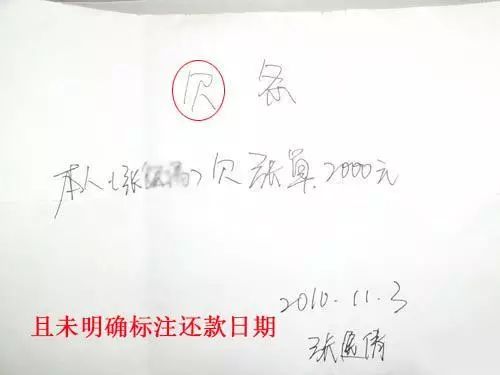 欠条
本人(张)欠张单.2000元
2010.11.3
且未明确标注还款日期
张